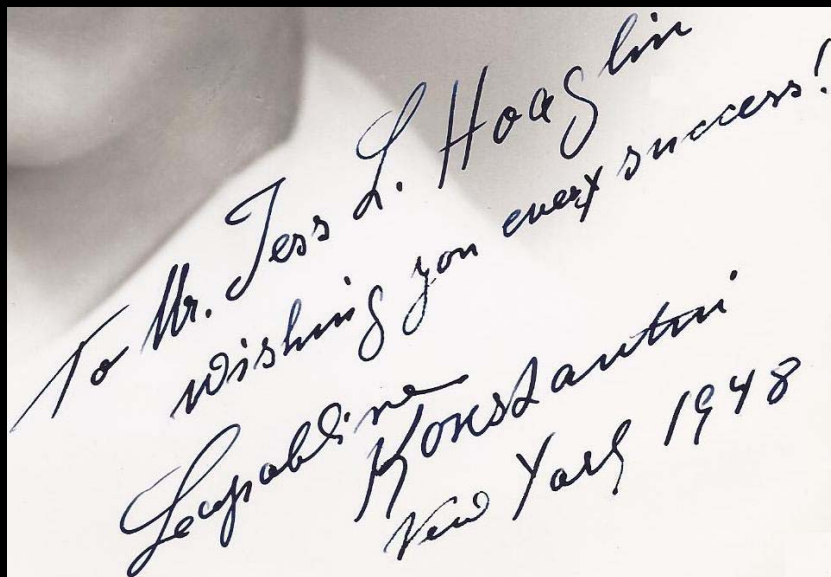 To Mr. Jess L. Hoaglin
wishing you every success!
Leopoldine
Konstantin
New York 1948